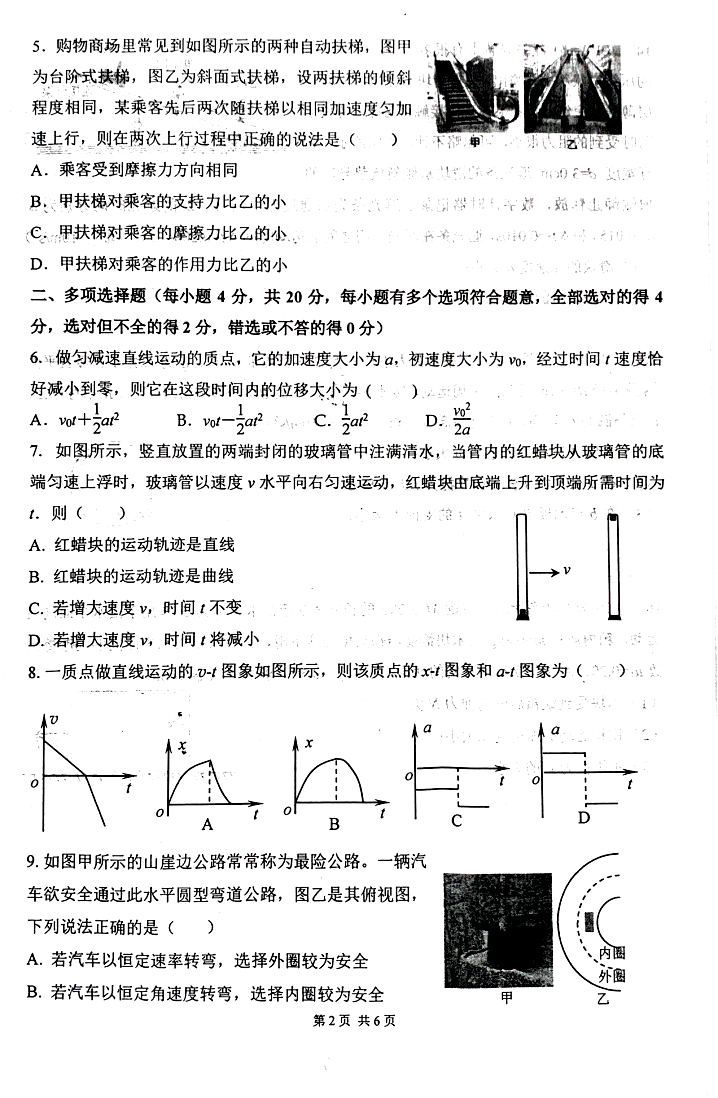 5．购物商场里常见到如图所示的两种自动扶梯，图甲
为台阶式扶梯，图乙为斜面式扶梯，设两扶梯的倾斜
程度相同，某乘客先后两次随扶梯以相同加速度匀加
速上行，则在两次上行过程中正确的说法是（　　）
甲　乙
A．乘客受到摩擦力方向相同
B．甲扶梯对乘客的支持力比乙的小
C．甲扶梯对乘客的摩擦力比乙的小
D．甲扶梯对乘客的作用力比乙的小
二、多项选择题（每小题 4 分，共 20 分，每小题有多个选项符合题意，全部选对的得 4
分，选对但不全的得 2 分，错选或不答的得 0 分）
6．做匀减速直线运动的质点，它的加速度大小为 a，初速度大小为 v₀，经过时间 t 速度恰
好减小到零，则它在这段时间内的位移大小为（　　）
A．v₀t＋1/2at²　B．v₀t－1/2at²　C．1/2at²　D．v₀²/2a
7．如图所示，竖直放置的两端封闭的玻璃管中注满清水，当管内的红蜡块从玻璃管的底
端匀速上浮时，玻璃管以速度 v 水平向右匀速运动，红蜡块由底端上升到顶端所需时间为
t．则（　　）
A. 红蜡块的运动轨迹是直线
B. 红蜡块的运动轨迹是曲线
v
C. 若增大速度 v，时间 t 不变
D. 若增大速度 v，时间 t 将减小
8. 一质点做直线运动的 v-t 图象如图所示，则该质点的 x-t 图象和 a-t 图象为（　　）
v　x　x　a　a
o　t　o　t　o　t　o　t　o　t
A　B　C　D
9. 如图甲所示的山崖边公路常常称为最险公路。一辆汽
车欲安全通过此水平圆型弯道公路，图乙是其俯视图，
下列说法正确的是（　　）
A. 若汽车以恒定速率转弯，选择外圈较为安全
B. 若汽车以恒定角速度转弯，选择内圈较为安全
内圈
外圈
甲　乙
第 2 页 共 6 页